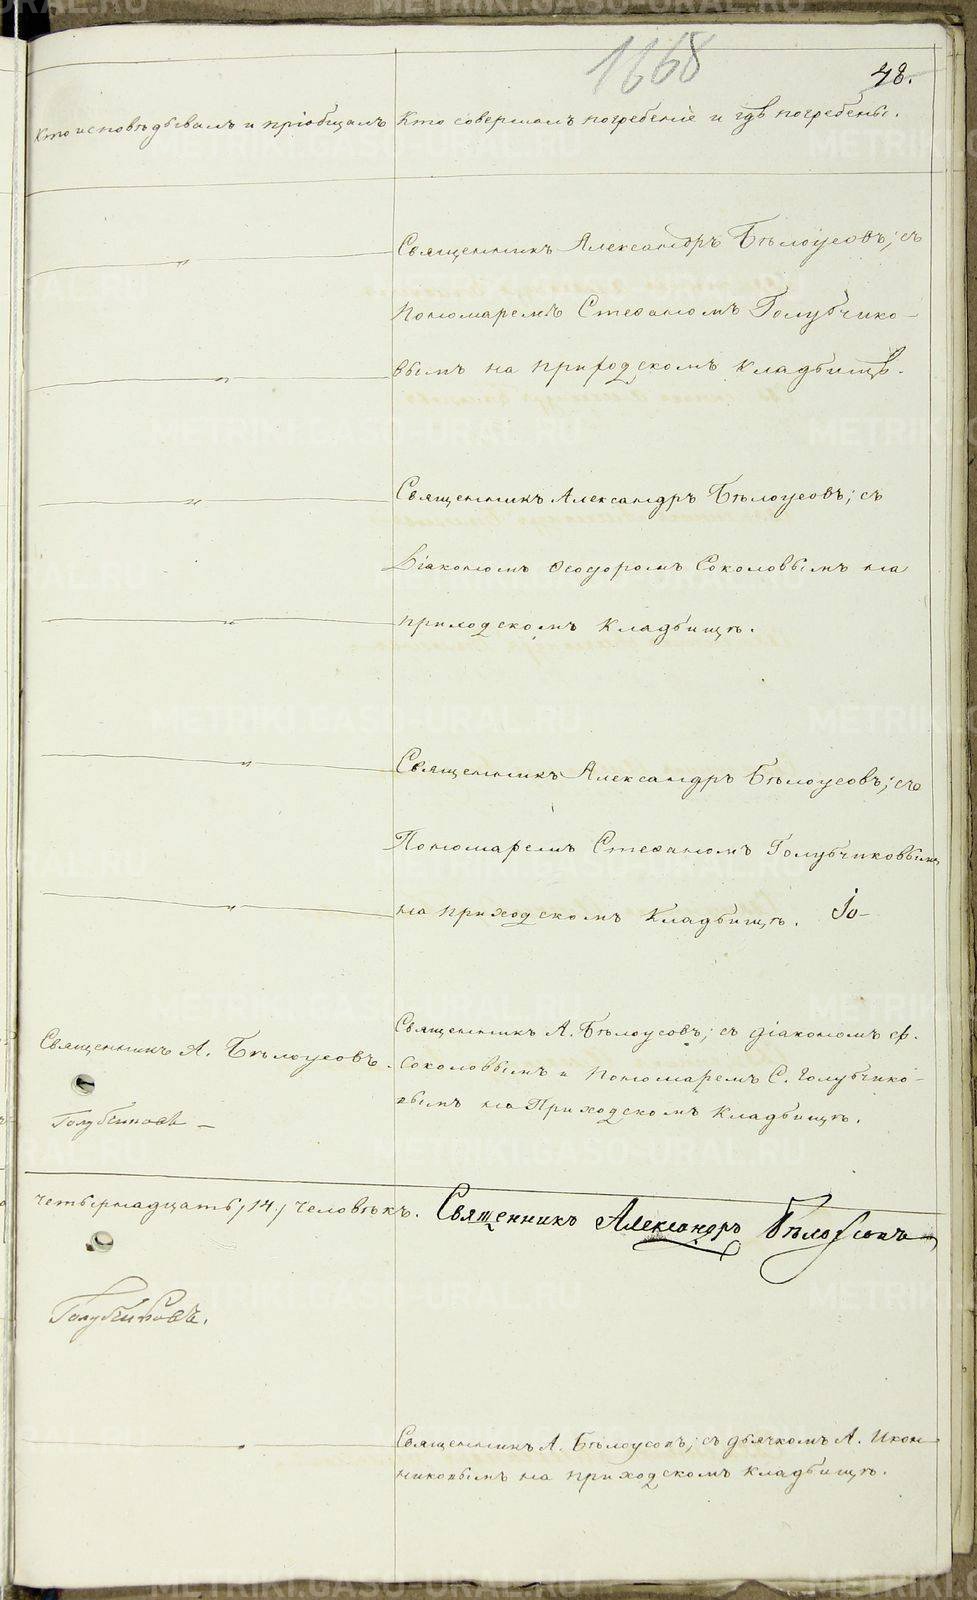 1668
48.
Кто исповѣдывалъ и пріобщалъ
Кто совершалъ погребеніе и гдѣ погребены.
Священникъ Александръ Бѣлоусовъ; съ
Пономаремъ Стефаномъ Голубчико-
вымъ на приходскомъ кладбищѣ.
Священникъ Александръ Бѣлоусовъ; съ
Діакономъ Ѳеодоромъ Соколовымъ на
приходскомъ кладбищѣ.
Священникъ Александръ Бѣлоусовъ; съ
Пономаремъ Стефаномъ Голубчиковымъ
на приходскомъ кладбищѣ.
Священникъ А. Бѣлоусовъ.
Священникъ А. Бѣлоусовъ; съ діакономъ Ѳ.
Соколовымъ и Пономаремъ С. Голубчико-
вымъ на Приходскомъ кладбищѣ.
Голубчиковъ
четырнадцать /14/ человѣкъ. Священникъ Александръ Бѣлоусовъ
Голубчиковъ.
Священникъ А. Бѣлоусовъ; съ дьячкомъ А. Икон-
никовымъ на приходскомъ кладбищѣ.
METRIKI.GASO-URAL.RU